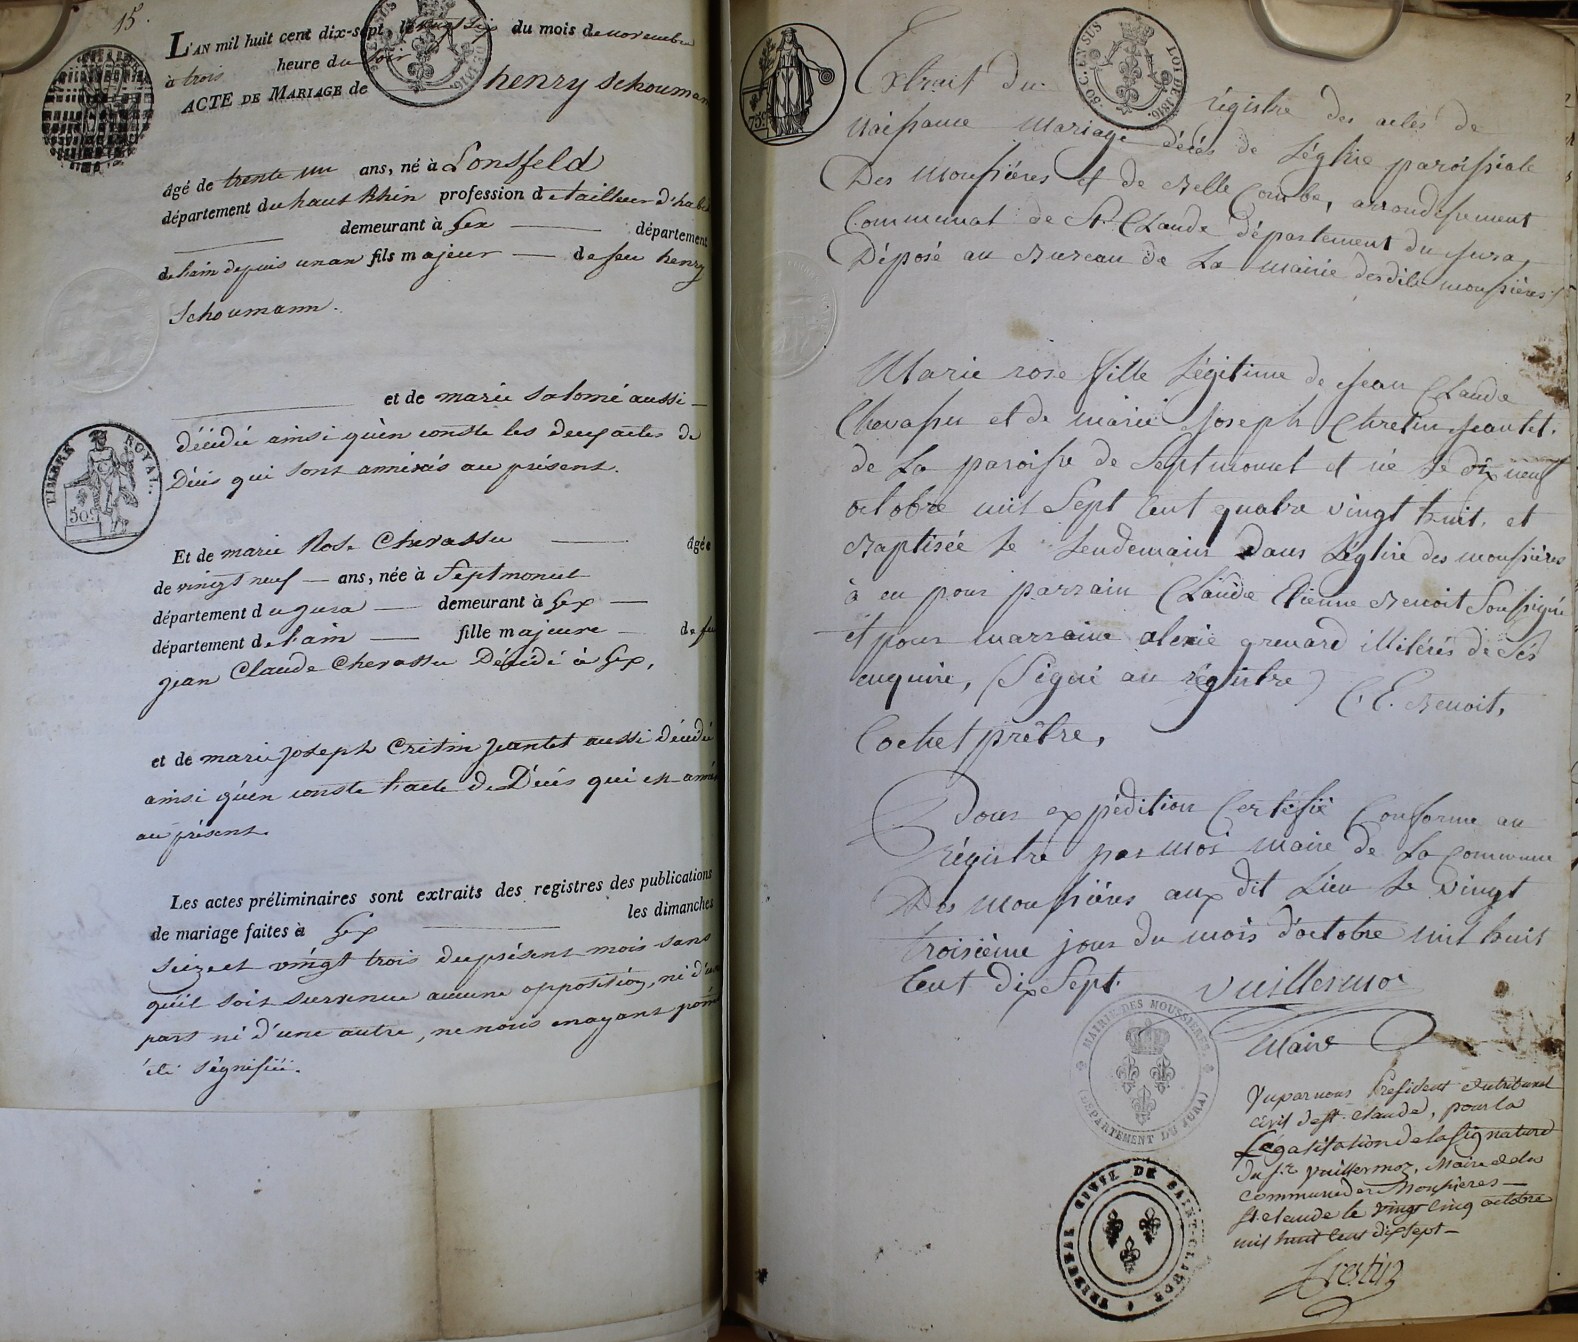 15.
L'AN mil huit cent dix-sept, le vingt six du mois de novembre
à trois heure du soir
ACTE DE MARIAGE de henry Schouman
âgé de trente un ans, né à Lonsfeld
département du haut Rhin profession de tailleur d'hab
demeurant à Gex département
de l'ain depuis un an fils majeur de feu henry
Schoumann.
et de marie salomé aussi
décédée ainsi qu'en conste les deux actes de
Décès qui sont annéxés au présent.
TIMBRE ROYAL.
50c
Et de marie Rose Chevassu âgée
de vingt neuf ans, née à Septmoncel
département du jura demeurant à Gex
département de l'ain fille majeure de feu
jean Claude Chevassu Décédé à Gex,
et de marie joseph Cretin jeantet aussi décédée
ainsi qu'en conste l'acte de Décès qui est anné
au présent.
Les actes préliminaires sont extraits des registres des publications
de mariage faites à Gex les dimanches
seize et vingt trois du présent mois sans
qu'il soit survenue aucune opposition, ni d'une
part ni d'une autre, ne nous en ayant point
été ségnifiée.
75c
50 C. EN SUS LOI DE 1816.
Extrait du régistre des actes de
naissance mariage décès de L'église paroissiale
Des moussières et de Belle Combe, arrondissement
Communal de St. Claude département du jura,
Déposé au Bureau de La mairie desdite moussières
Marie rose fille Légitime de jean Claude
Chevassu et de marie joseph Chretin jeantet.
de La paroisse de Septmoncel et née le dix neuf
octobre mil Sept Cent quatre vingt huit, et
Baptisée le Lendemain dans L'église des moussières
à eu pour parrain Claude Etienne Benoit Soussigné
et pour marraine alexie grenard illitérés de Ses
enquire, (Signé au régistre) C. E. Benoit,
Cochet prêtre,
Pour expédition Certifié Conforme au
régistre par moi maire de La Commune
Des moussières aux dit Lieu le vingt
troisième jour du mois d'octobre mil huit
Cent dix Sept. Vuillermoz
Maire
MAIRIE DES MOUSSIERES
(DÉPARTEMENT DU JURA)
Vu par nous Président du tribunal
civil de St. claude, pour la
Légalisation de la Signature
du sr. Vuillermoz, Maire de la
commune des Moussières
St. claude le vingt cinq octobre
mil huit cent dix sept
TRIBUNAL CIVIL DE SAINT-CLAUDE